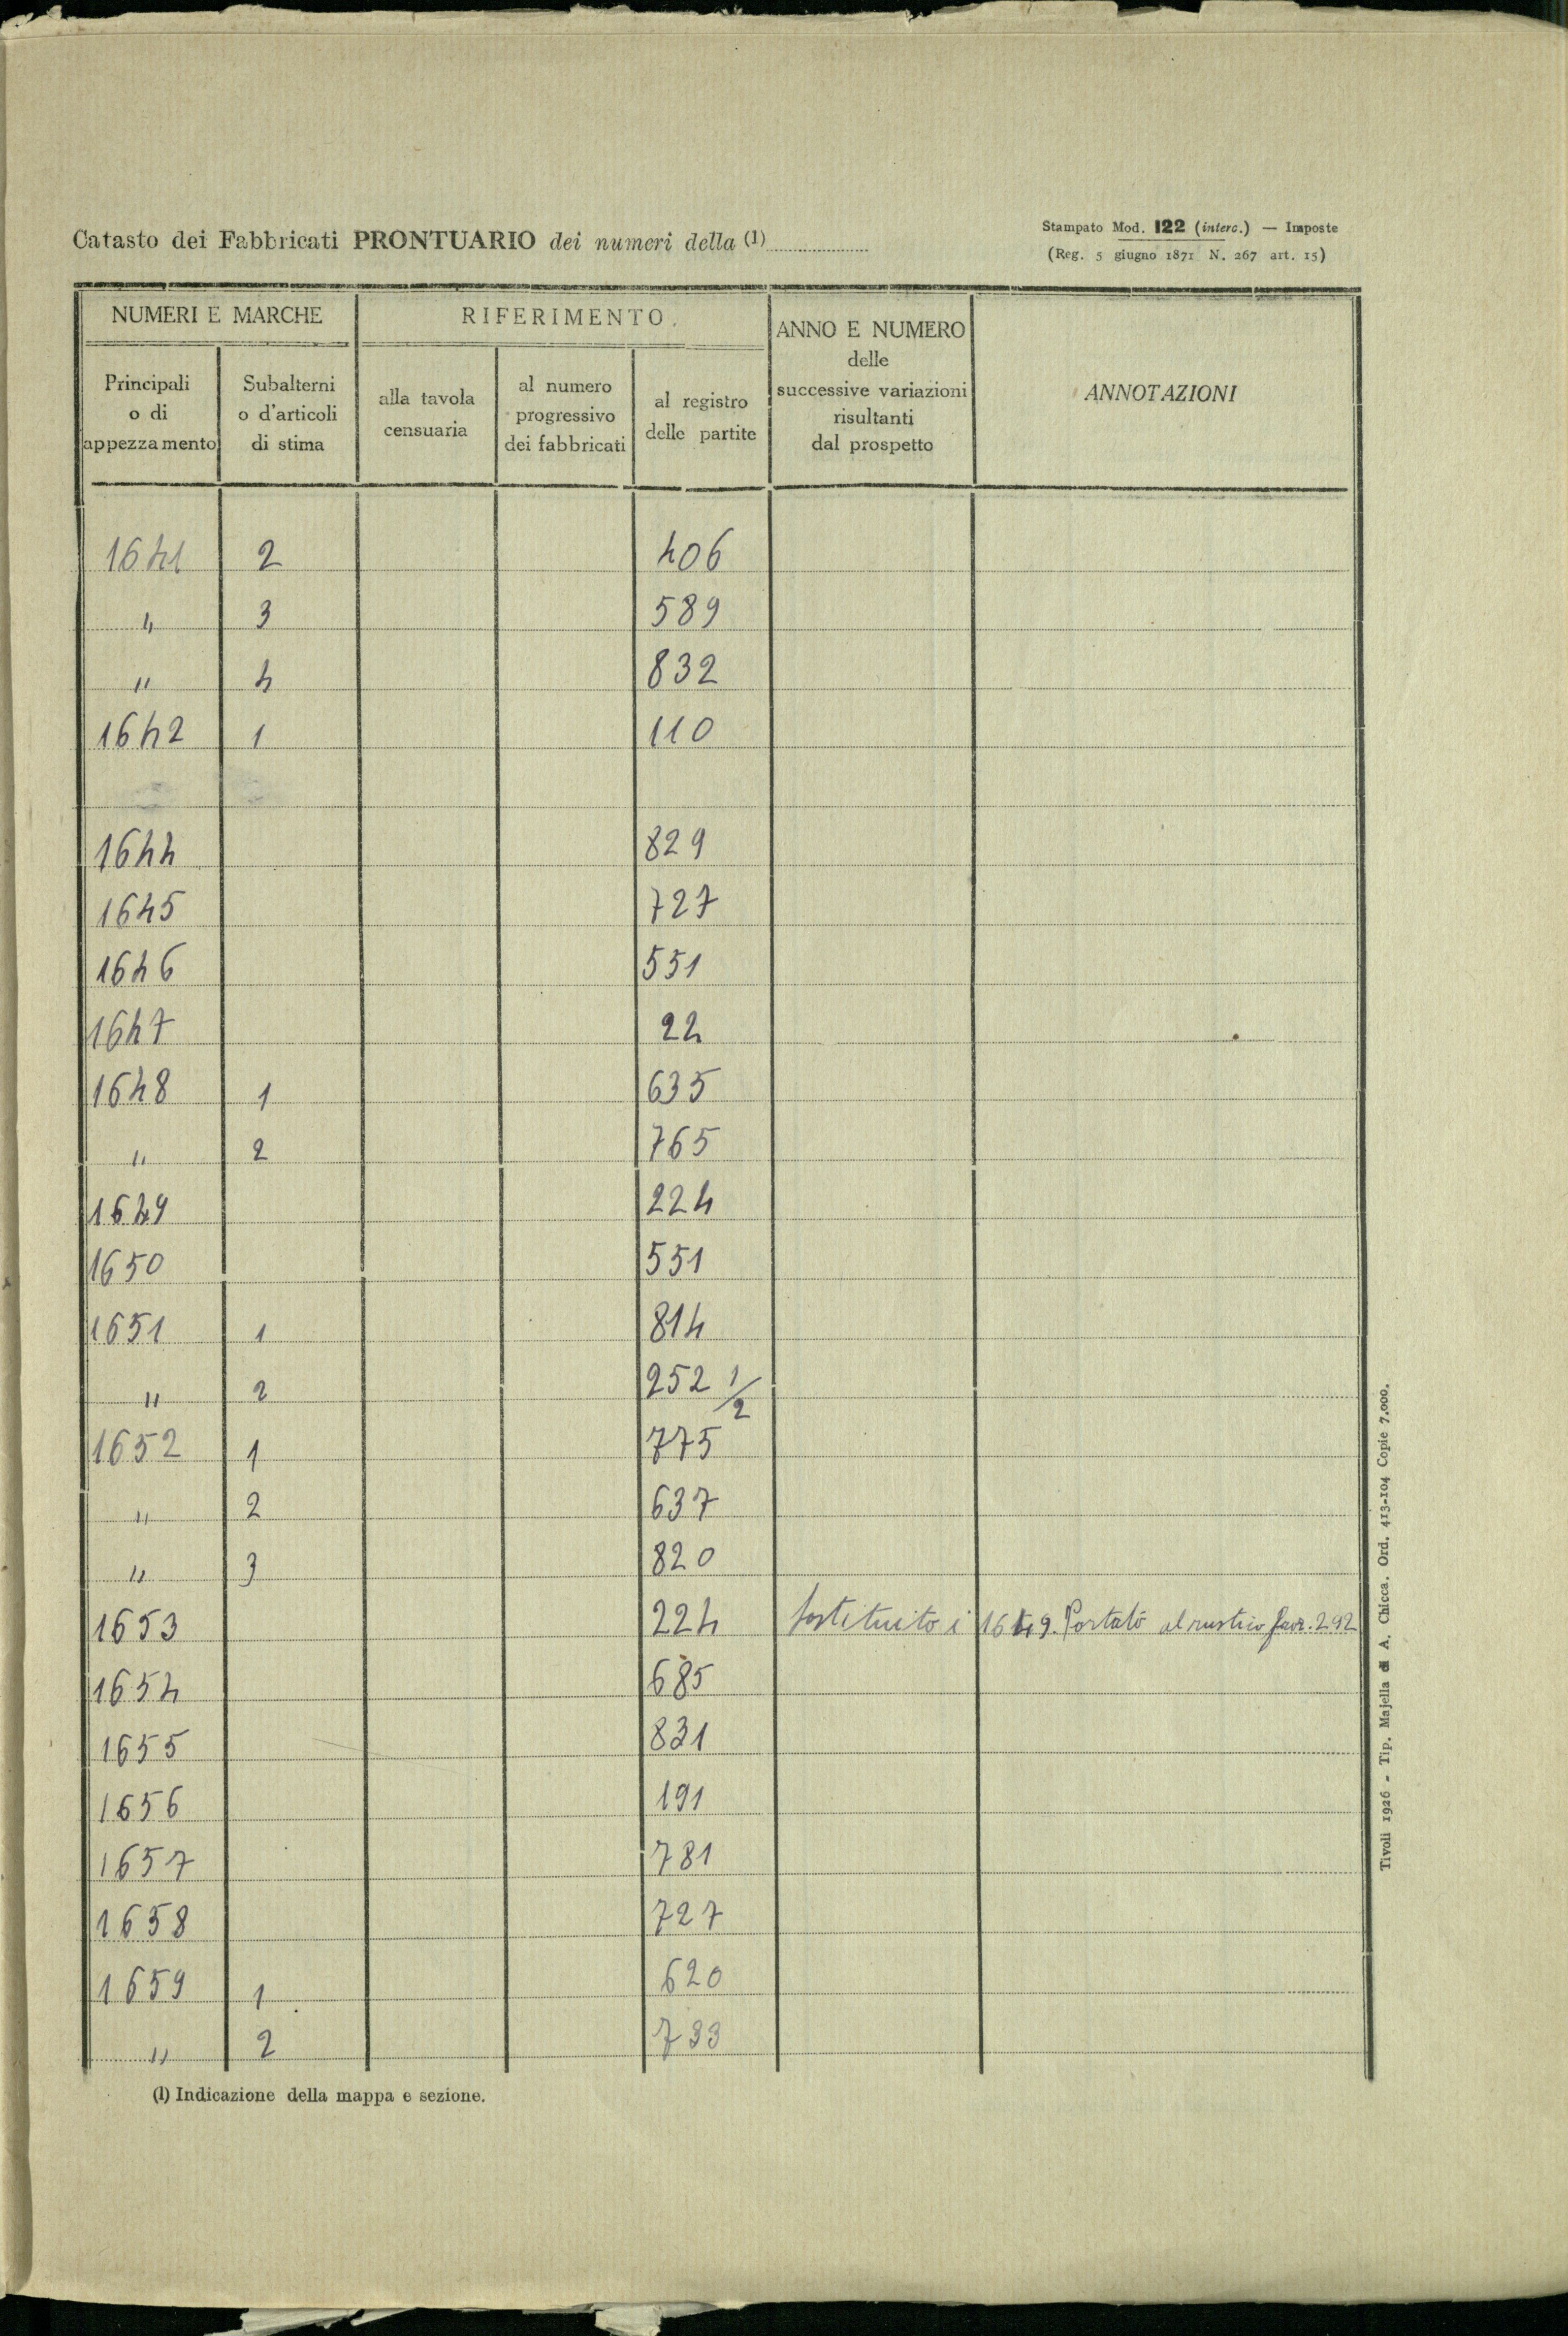 Catasto dei Fabbricati PRONTUARIO dei numeri della (1)
Stampato Mod. 122 (interc.) — Imposte
(Reg. 5 giugno 1871 N. 267 art. 15)
NUMERI E MARCHE
RIFERIMENTO.
ANNO E NUMERO
delle
successive variazioni
risultanti
dal prospetto
ANNOTAZIONI
Principali
o di
appezzamento
Subalterni
o d'articoli
di stima
alla tavola
censuaria
al numero
progressivo
dei fabbricati
al registro
delle partite
1641 2 406
" 3 589
" 4 832
1642 1 110
1644 829
1645 727
1646 551
1647 24
1648 1 635
" 2 765
1649 224
1650 551
1651 1 814
" 2 252 1/2
1652 1 775
" 2 637
" 3 820
1653 224 Sostituito i 1649. Portato al rustico 292
1654 685
1655 831
1656 191
1657 781
1658 727
1659 1 620
" 2 733
(1) Indicazione della mappa e sezione.
Tivoli 1926 - Tip. Majella di A. Chicca. Ord. 413-104 Copie 7.000.